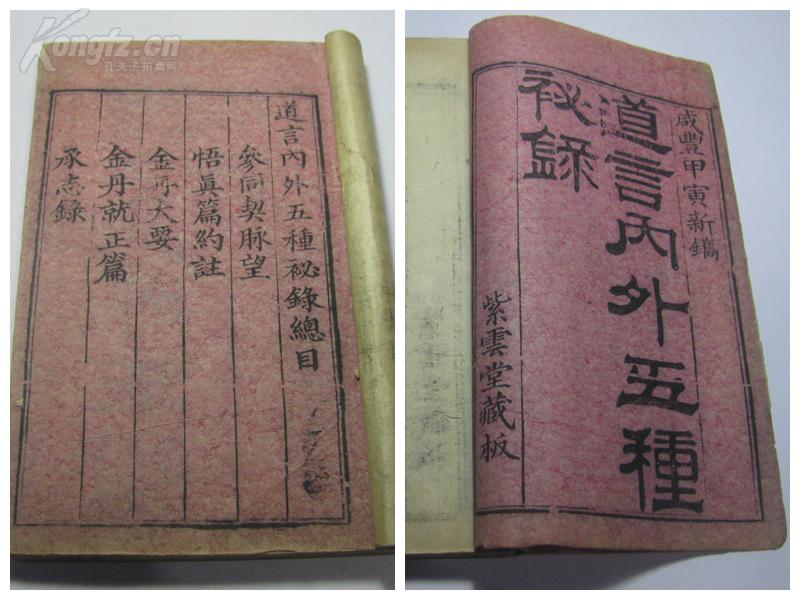 Kongfz.cn
孔夫子拍卖网
道言內外五種祕錄總目
參同契脉望
悟眞篇約註
金丹大要
金丹就正篇
承志錄
咸豐甲寅新鐫
道言內外五種
祕錄
紫雲堂藏板